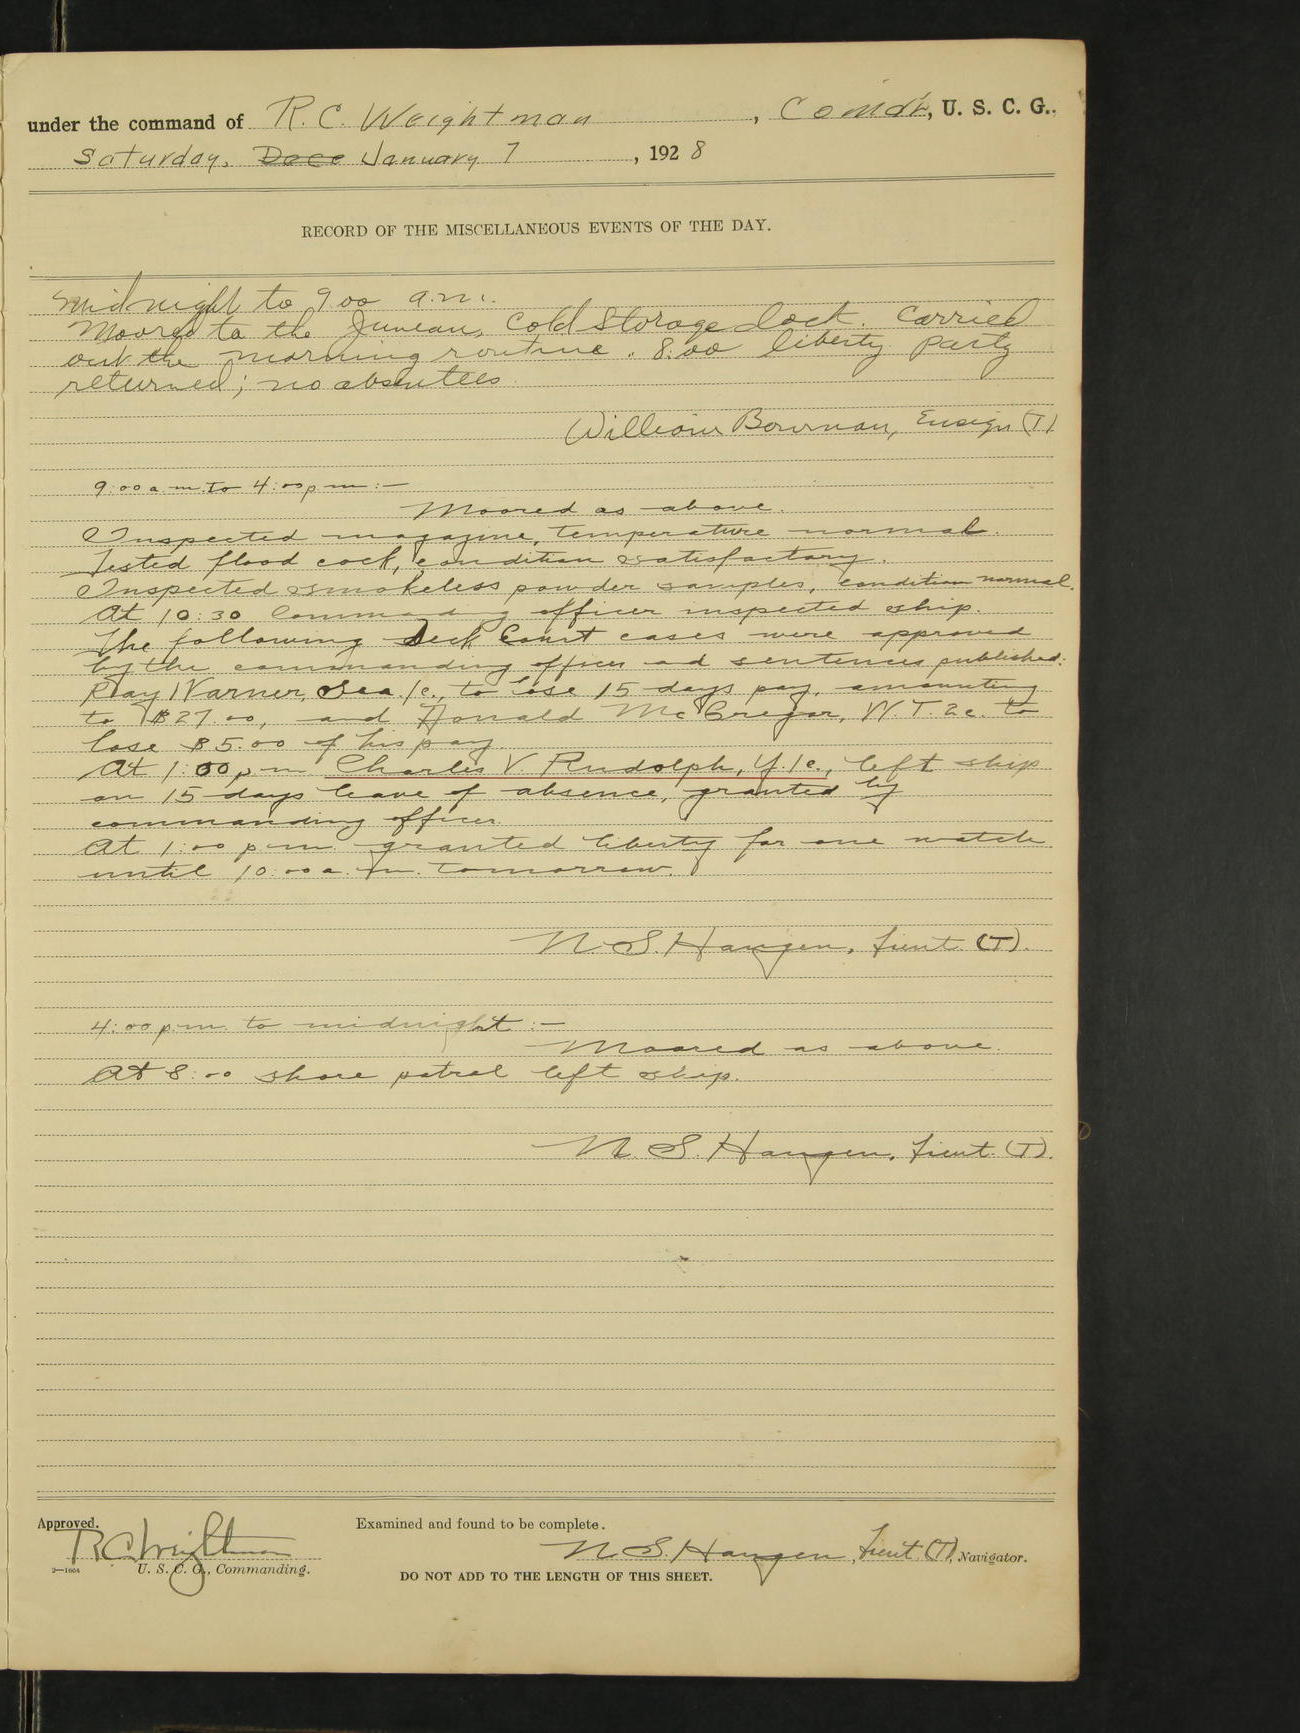 under the command of R. C. Weightman, Comdr, U. S. C. G.,
Saturday, Dece January 7, 1928
RECORD OF THE MISCELLANEOUS EVENTS OF THE DAY.
Midnight to 9 00 a.m.
Moored to the Juneau, Cold Storage dock. Carried
out the morning routine. 8:00 liberty party
returned; no absentees
William Bowman, Ensign (T)
9:00 a.m. to 4:00 p m :—
Moored as above.
Inspected magazine, temperature normal.
Tested flood cock, condition satisfactory.
Inspected smokeless powder samples, condition normal.
At 10:30 Commanding officer inspected ship.
The following Deck Court cases were approved
by the commanding officer ad sentences published:
Ray Warner, Sea. 1c., to lose 15 days pay, amounting
to $27.00, and Donald McGregor, W.T. 2c. to
lose $5.00 of his pay.
At 1:00 p m Charles V. Rudolph, Y. 1c., left ship
on 15 days leave of absence, granted by
commanding officer.
At 1:00 p m granted liberty for one watch
until 10:00 a. m. tomorrow.
N. S. Haugen, Lieut. (T).
4:00 p.m. to midnight :—
Moored as above.
At 8:00 shore patrol left ship.
N. S. Haugen, Lieut. (T).
Approved.
Examined and found to be complete.
R C Weightman
N. S. Haugen, Lieut. (T), Navigator.
2—1604
U. S. C. G., Commanding.
DO NOT ADD TO THE LENGTH OF THIS SHEET.